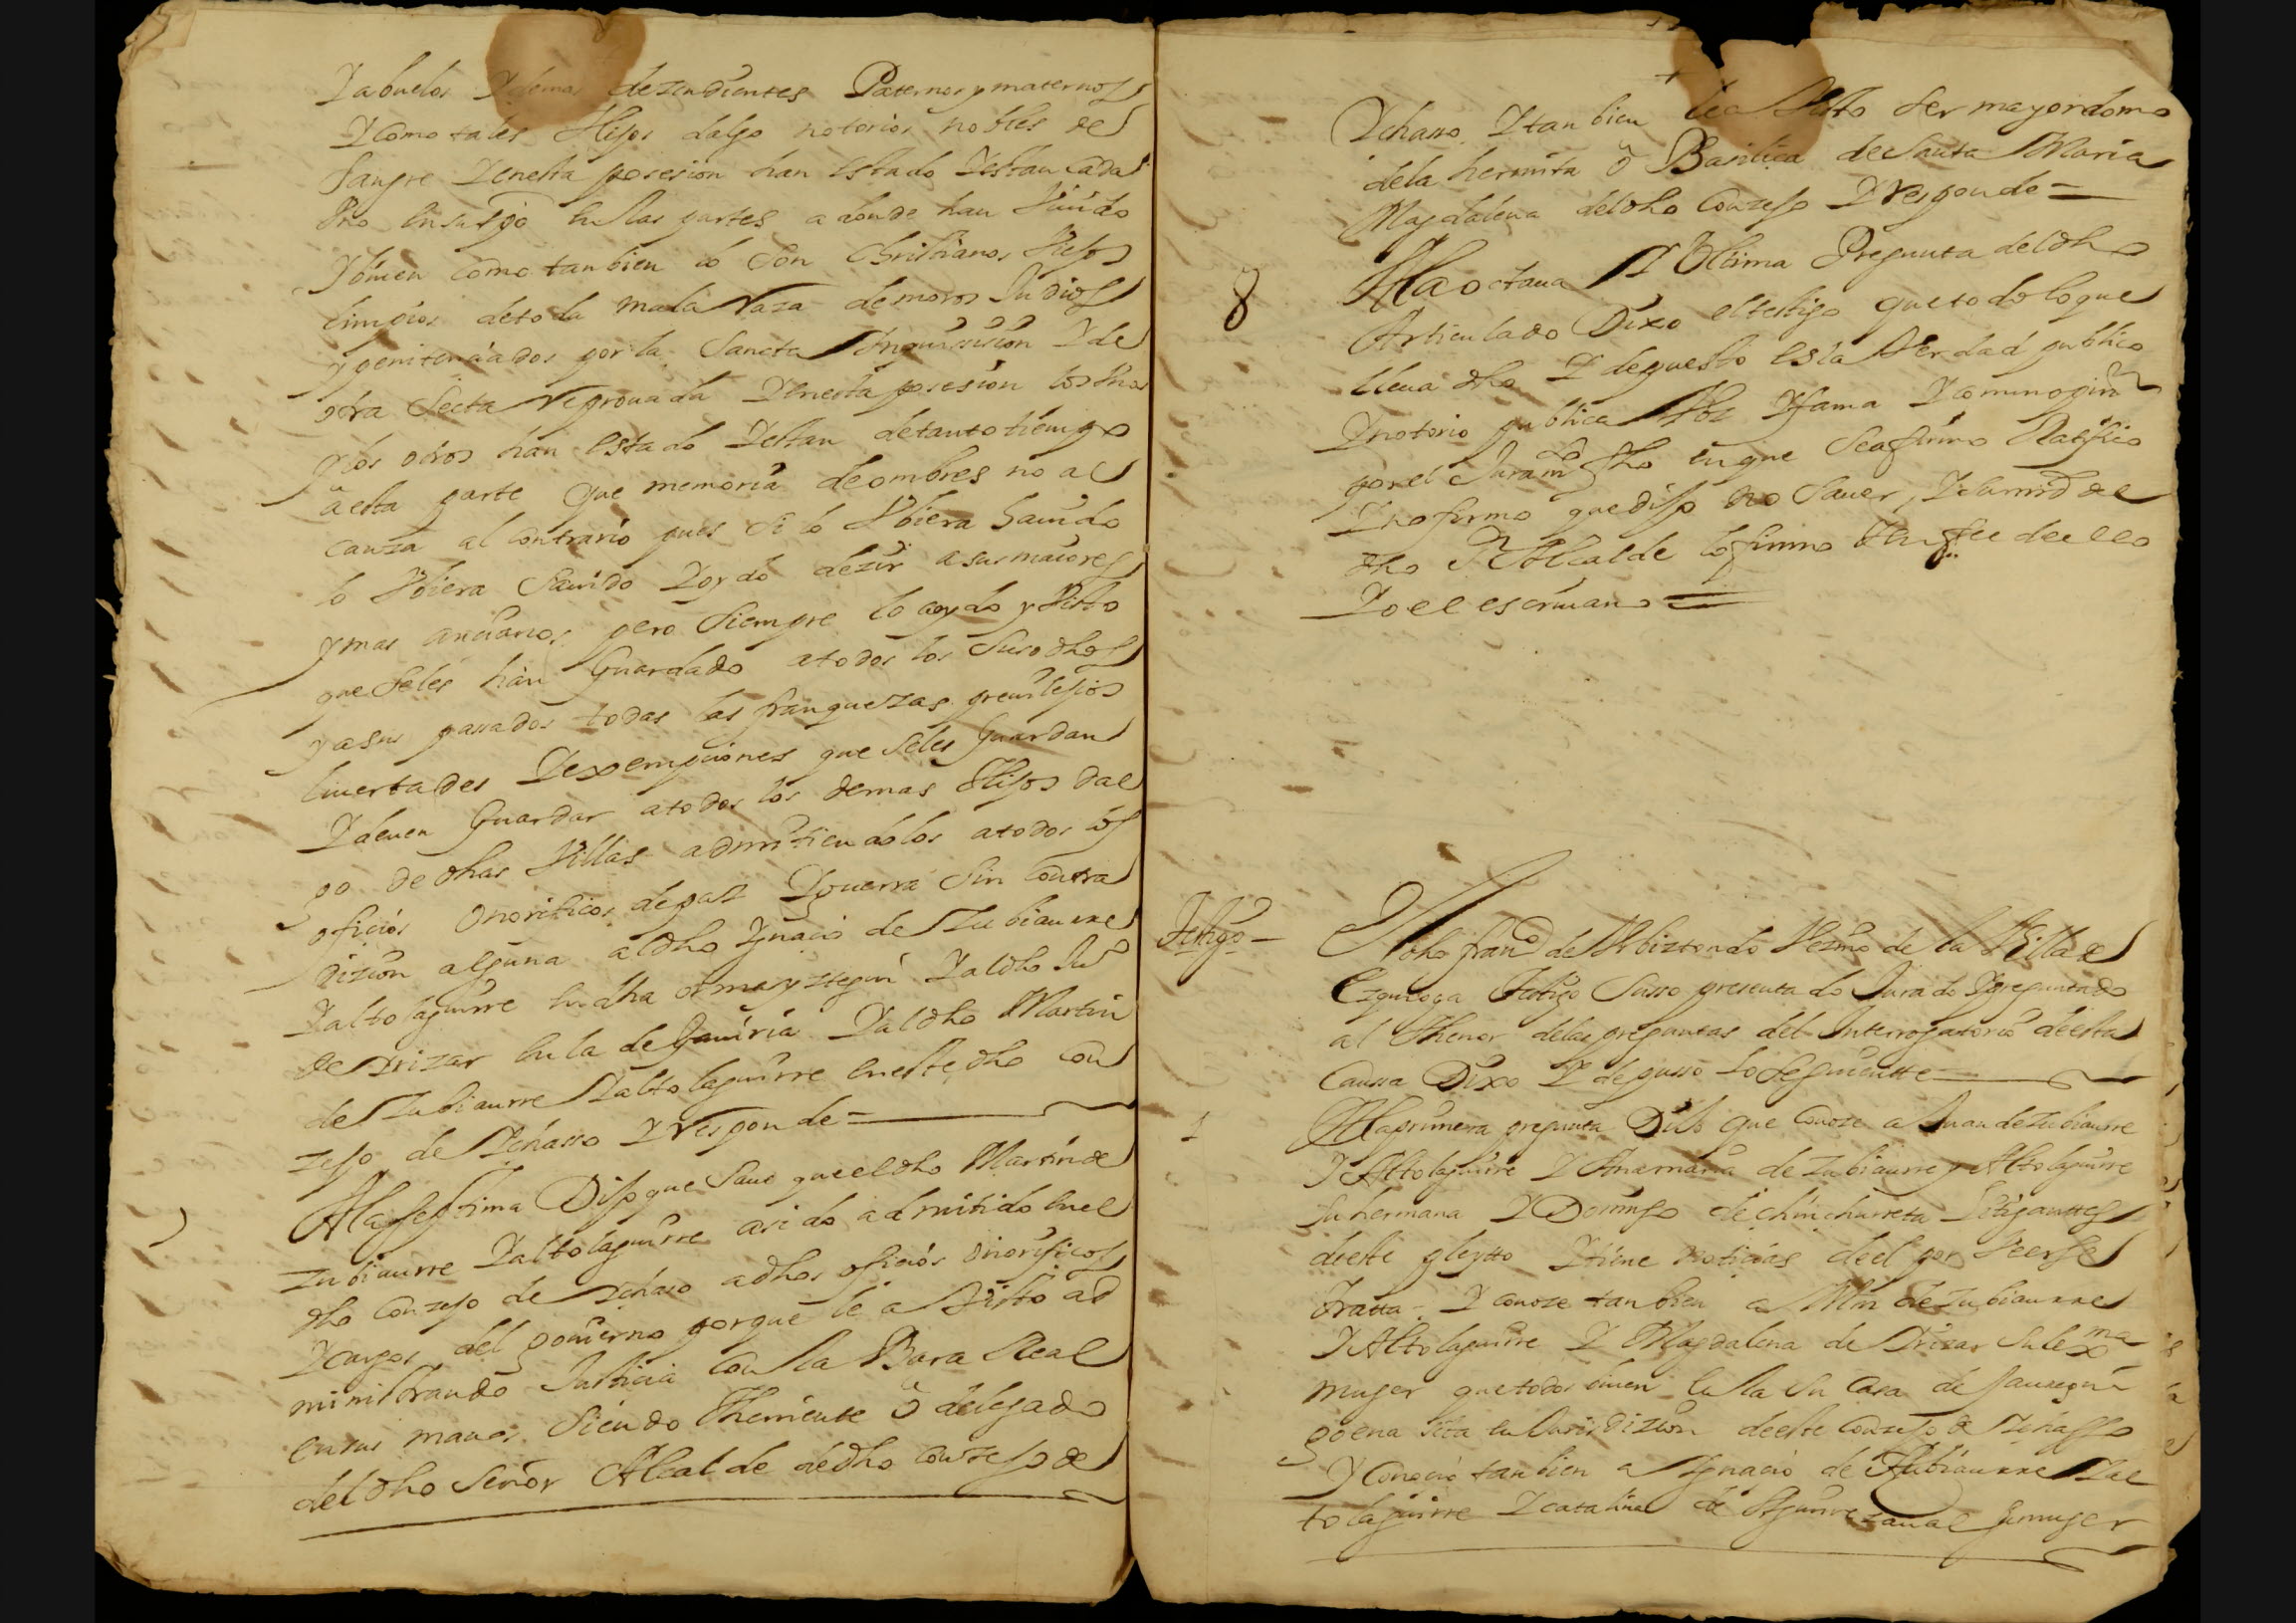 Y abuelos Y demas dezendientes Paternos y maternos
Y como tales Hijos dalgo notorios nobles de
sangre Y en esta posesion han estado Y estan cada
Vno en su tpo en las partes a donde han viuido
Y viuen como tanbien lo son christianos viejos
limpios de toda mala raza de moros Judios
y penitenciados por la Sancta Inquisicion Y de
otra secta reprouada Y en esta posesion los vnos
y los otros han estado Y estan de tanto tiempo
a esta parte que memoria de ombres no al
canza al contrario pues si lo Vbiera hauido
lo Vbiera sauido Y oydo dezir a sus maiores
y mas ancianos pero siempre lo a oydo y visto
que se les han guardado a todos los susodhos
y a sus pasados todas las franquezas preuilejios
liuertades Y exempciones que se les guardan
Y deuen guardar a todos los demas Hijos dal
go de dhas Villas admitiendolos a todos los
oficios onorificos de paz Y guerra sin contra
dizion alguna al dho Ygnacio de Zubiaurre
Y altolaguirre en dha ormayztegui Y al dho Jun
de Yrizar en la de Gauiria Y al dho Martin
de Zubiaurre Y altolaguirre en este dho con
zejo de Ychasso Y responde =
A la septima Dijo que saue que el dho Martin de
Zubiaurre Y altolaguirre a sido admitido en el
dho Conzejo de Ychaso a dhos oficios onorificos
Y cargos del gouierno porque le a visto ad
ministrando Justicia con la Bara Real
en sus manos siendo Theniente o delegado
del dho señor Alcalde de dho conzejo de
Ychasso Y tanbien le a visto ser mayordomo
de la hermita o Basilica de Santa Maria
Magdalena del dho Conzejo Y responde =
8 A la octaua Y Vltima Pregunta del dho
Articulado Dixo el testigo que todo lo que
lleua dho Y depuesto es la verdad publico
Y notorio publica Voz Y fama Y comun opinn
por el Juramto fho en que se afirmo Ratifico
Y no firmo que dijo no sauer, Y su md del
dho Sr Alcalde lo firmo En fee de ello
Yo el escriuano =
Testigo – El dho franco de Vbiztondo Vezino de la Villa de
Ezquioga Testigo susso presentado Jurado Y preguntado
al Thenor de las preguntas del Interrogatorio de esta
Caussa Dixo Y depusso Lo seguientte
1 A la primera pregunta Dijo que conoze a Juan de Zubiaurre
Y Altolaguirre Y Ana maria de Zubiaurre y Altolaguirre
su hermana Y Domingo de chinchurreta Litigantes
de este pleytto Y tiene noticias de el por veer se
tratta. Y conoze tanbien a Mrn de Zubiaurre
Y Altolaguirre Y Magdalena de Yrizar su lexma
muger que todos viuen en la su casa de Jauregui
goena sita en Jurisdizion de este Conzejo de Ychasso
Y Conocio tanbien a Ygnacio de Zubiaurre Y al
tolaguirre Y catalina de Aguirrezaual su muger